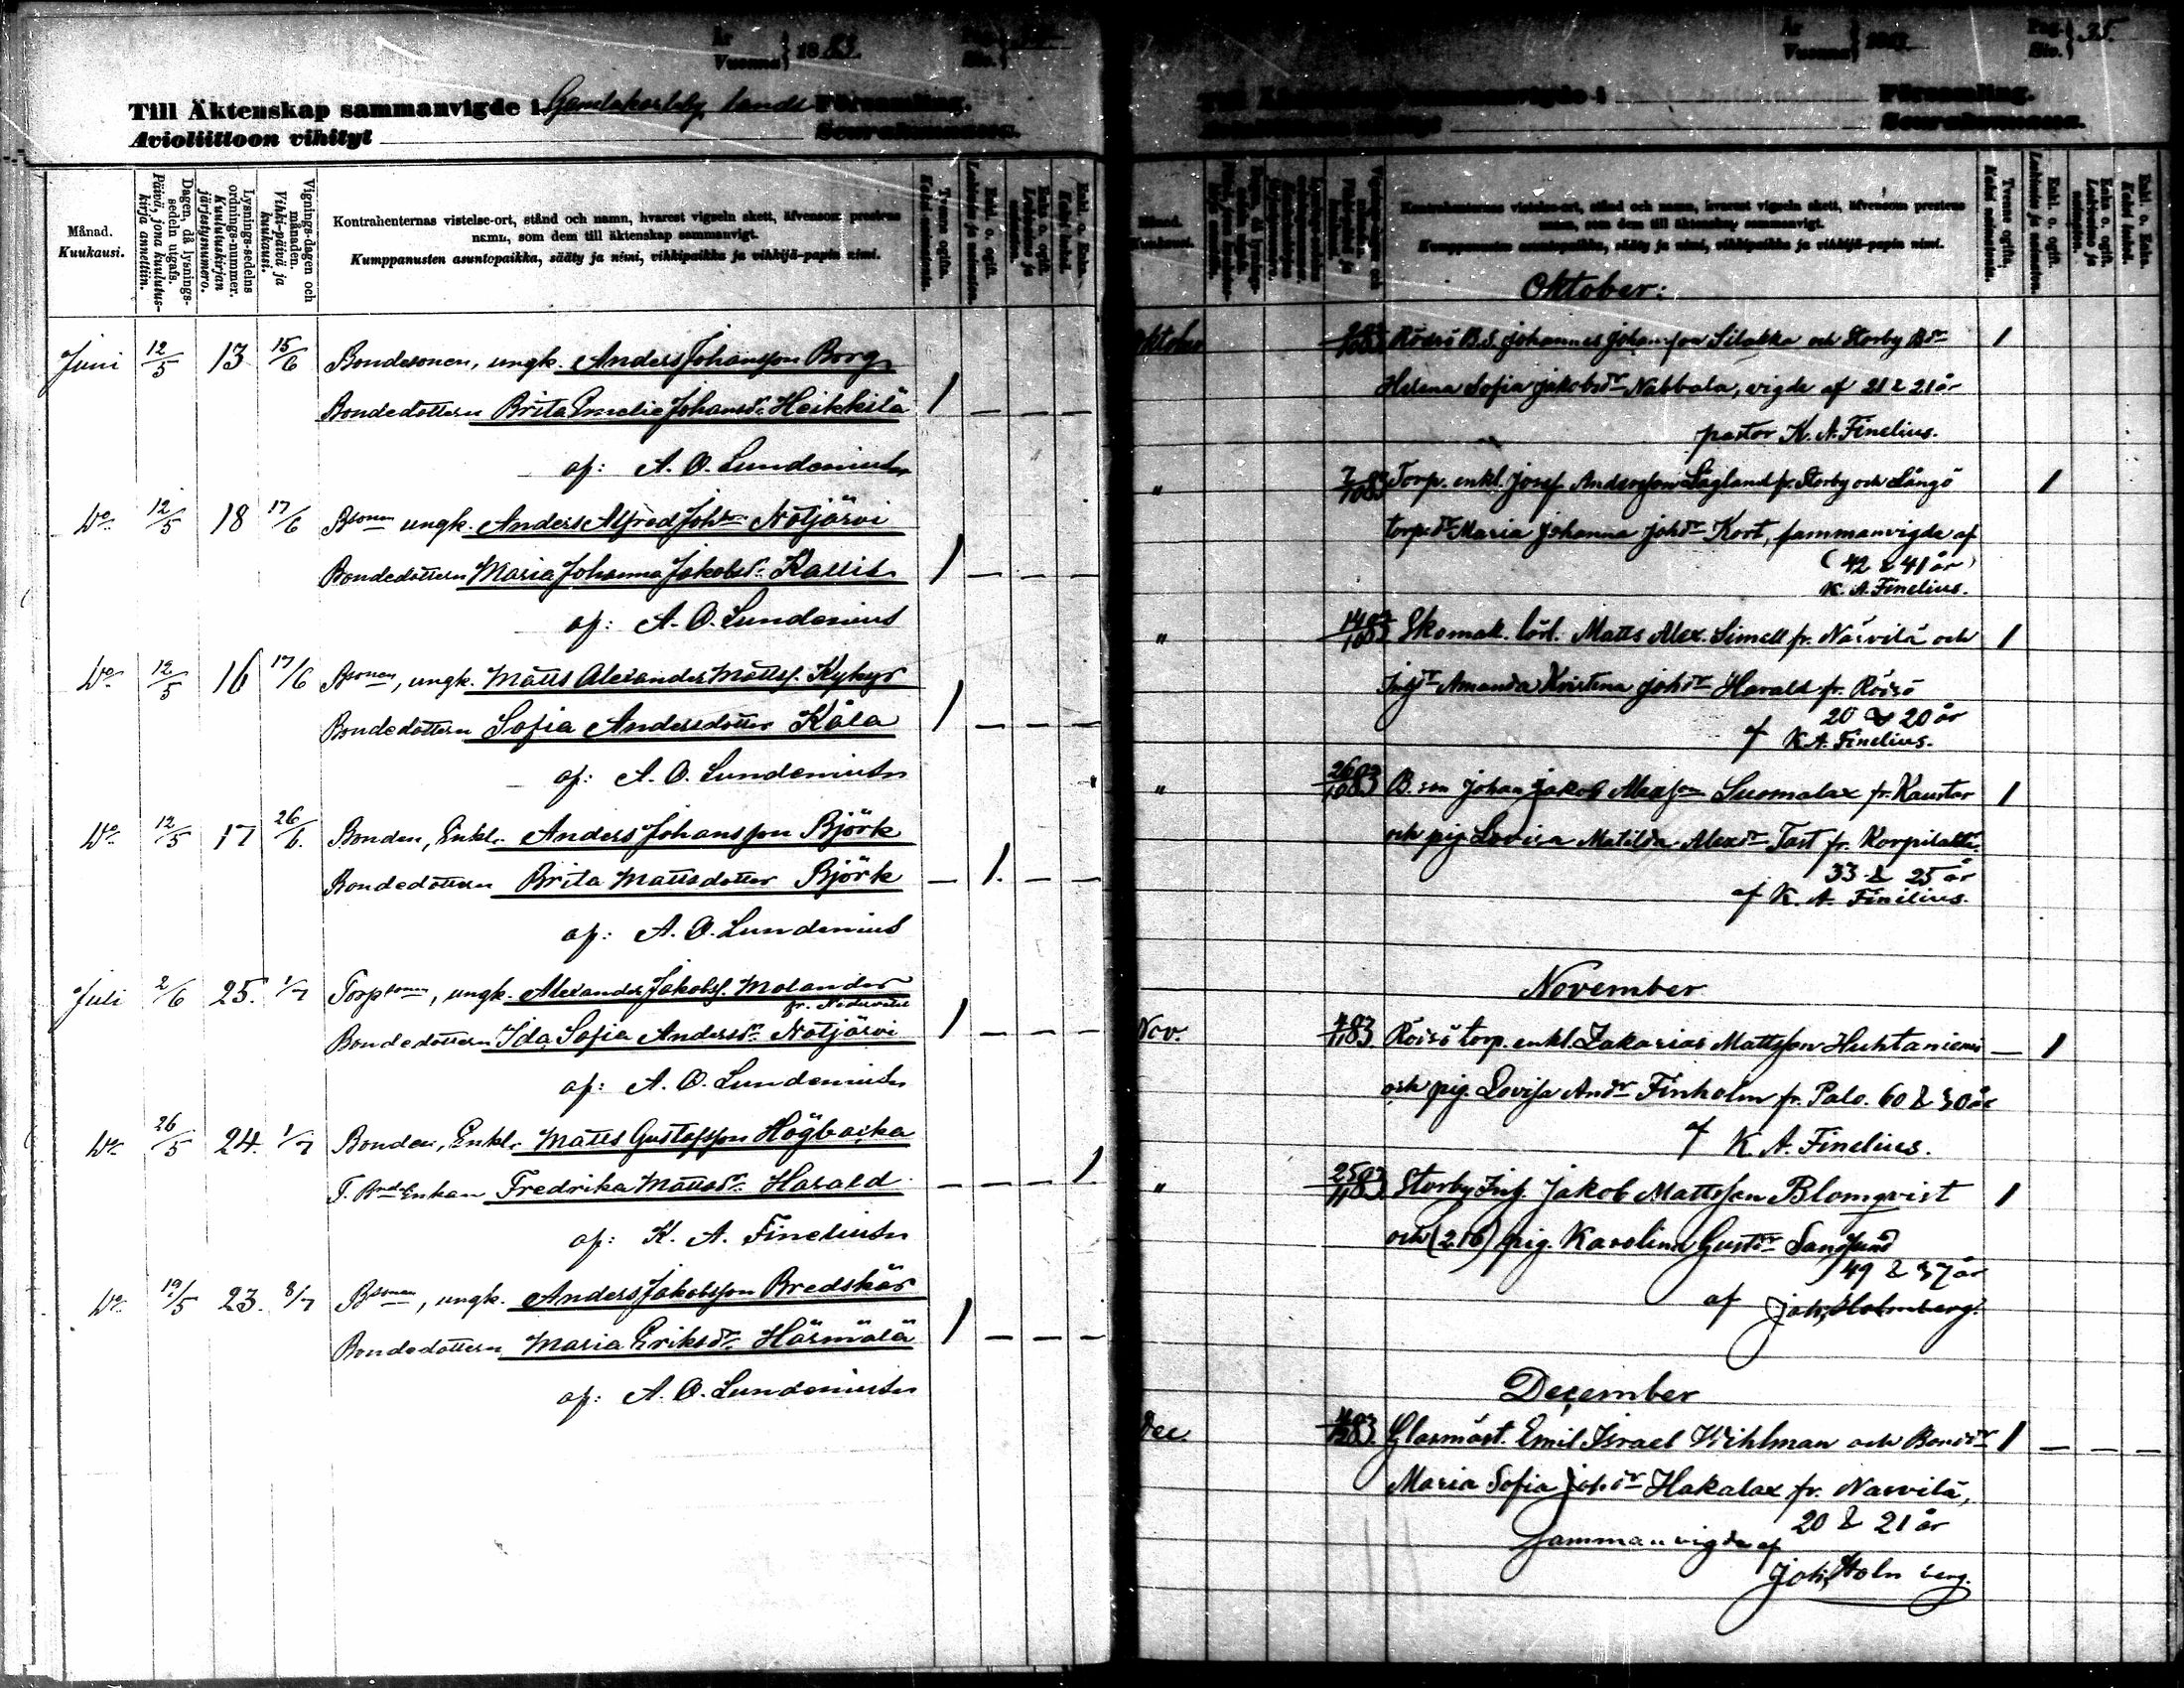 År
Vuonna } 1883.
Pag.
Siv. }
Till Äktenskap sammanvigde i Gamlakarleby lands Församling.
Avioliittoon vihityt Seurakunnassa.
Månad.
Kuukausi.
Dagen, då lysnings-sedeln utgafs.
Päivä, jona kuulutus-kirja annettiin.
Lysnings-sedelns ordnings-nummer.
Kuulutuskirjan järjestysnumero.
Vignings-dagen och månaden.
Vihki-päivä ja kuukausi.
Kontrahenternas vistelse-ort, stånd och namn, hvarest vigseln skett, äfvensom prestens
namn, som dem till äktenskap sammanvigt.
Kumppanusten asuntopaikka, sääty ja nimi, vihkipaikka ja vihkijä-papin nimi.
Tvenne ogifta.
Kaksi naimatonta.
Enkl. o. ogift.
Leskimies ja naimaton.
Enka o. ogift.
Enkl. o. Enka.
Kaksi leskeä.
Juni 12/5 13 15/6 Bondesonen, ungk. Anders Johansson Borg
Bondedottern Brita Emelie Johansdr. Heikkilä 1 — — —
af: A. O. Lundenius
Do 12/5 18 17/6 Bsonen ungk. Anders Alfred Johsson Nötjärvi
Bondedottern Maria Johanna Jakobsdr. Kallis 1 — — —
af: A. O. Lundenius
Do 12/5 16 17/6 Bsonen, ungk. Matts Alexander Mattss. Kykyr
Bondedottern Sofia Andersdotter Kåla 1 — — —
af: A. O. Lundenius
Do 12/5 17 26/6. Bonden, Enkl. Anders Johansson Björk
Bondedottern Brita Mattsdotter Björk — 1. — —
af: A. O. Lundenius
Juli 2/6 25. 1/7 Torpsonen, ungk. Alexander Jakobss. Molander
fr. Nedervetil
Bondedottern Ida Sofia Andersdr. Nötjärvi 1 — — —
af: A. O. Lundenius
Do 26/5 24. 1/7 Bonden, Enkl. Matts Gustafsson Högbacka
Enkan Fredrika Mattsdr. Harald — — — 1
af: K. A. Finelius
Do 19/5 23. 8/7 Bsonen, ungk. Anders Jakobsson Bredskär
Bondedottern Maria Eriksdr. Härmälä 1 — — —
af: A. O. Lundenius
År
Vuonna }
Pag.
Siv. } 35.
Till Äktenskap sammanvigde i Församling.
Seurakunnassa.
Månad.
Kuukausi.
Kontrahenternas vistelse-ort, stånd och namn, hvarest vigseln skett, äfvensom prestens
namn, som dem till äktenskap sammanvigt.
Kumppanusten asuntopaikka, sääty ja nimi, vihkipaikka ja vihkijä-papin nimi.
Tvenne ogifta.
Kaksi naimatonta.
Enkl. o. ogift.
Leskimies ja naimaton.
Enka o. ogift.
Enkl. o. Enka.
Kaksi leskeä.
Oktober:
Oktober Röösö B.S. Johannes Johansson Silakka och Storby Bdr 1
Helena Sofia Jakobsdr Nabbala, vigde af 21 & 21 år
pastor K. A. Finelius.
" 7/10 83 Torp. enkl. Josef Andersson Lågland fr. Storby och Långö 1
torp.dr Maria Johanna Johdr Kort, sammanvigde af
(42 & 41 år)
K. A. Finelius.
" 14/10 83 Skomak. lärl. Matts Alex. Simell fr. Närvilä och 1
Amanda Kristina Johdr Harald fr. Röösö
20 & 20 år
af K. A. Finelius.
" 26/10 83 B. son Johan Jakob Alexsson Suomalax fr. Kaustar 1
och pig. Lovisa Matilda Alexdr Tast fr. Korpilaks.
33 & 25 år
af K. A. Finelius.
November
Nov. 4/11 83. Röösö torp. enkl. Zakarias Mattsson Huhtaniemi — 1
och pig. Lovisa Anddr Finholm fr. Palo. 60 & 30 år
af K. A. Finelius.
" 25/11 83 Storby Inh. Jakob Mattsson Blomqvist 1
och pig. Karolina Gustdr Sandlund
49 & 37 år
af Joh. Holmberg.
December
Dec. Glasmäst. Emil Israel Wihlman och Bonddr 1 — — —
Maria Sofia Johdr Hakalax fr. Narvilä,
20 & 21 år
sammanvigde af
Joh. Holmberg.